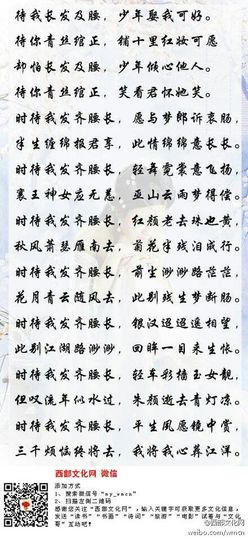 待我长发及腰，少年娶我可好。
待你青丝绾正，铺十里红妆可愿
却怕长发及腰，少年倾心他人。
待你青丝绾正，笑看君怀她笑。
时待我发齐腰长，愿与梦郎诉衷肠，
半生缠绵报君享，此情绵绵意长长。
时待我发齐腰长，轻舞霓裳意飞扬，
襄王神女应无恙，巫山云雨梦得偿。
时待我发齐腰长，红颜老去珠也黄，
秋风萧瑟雁南去，菊花半残泪成行。
时待我发齐腰长，前尘渺渺路茫茫，
花月青云随风去，此别残生梦断肠。
时待我发齐腰长，银汉迢迢遥相望，
此别江湖路渺渺，回眸一目来生怅。
时待我发齐腰长，轻车彩描玉女靓，
但叹流年似水过，朱颜逝去青灯凉。
时待我发齐腰长，半生风愿镜中赏，
三千烦恼终将去，我将我心葬江洋。
西部文化网 微信
添加方式
1、搜索微信号"my_wncn"
2、扫描左侧二维码
感谢您关注"西部文化网"，输入关键字可获取更多文化信息，
发送"读书""书画""诗词""旅游""电影"试着与"文化
哥"互动吧！
@西部文化网
weibo.com/wncn